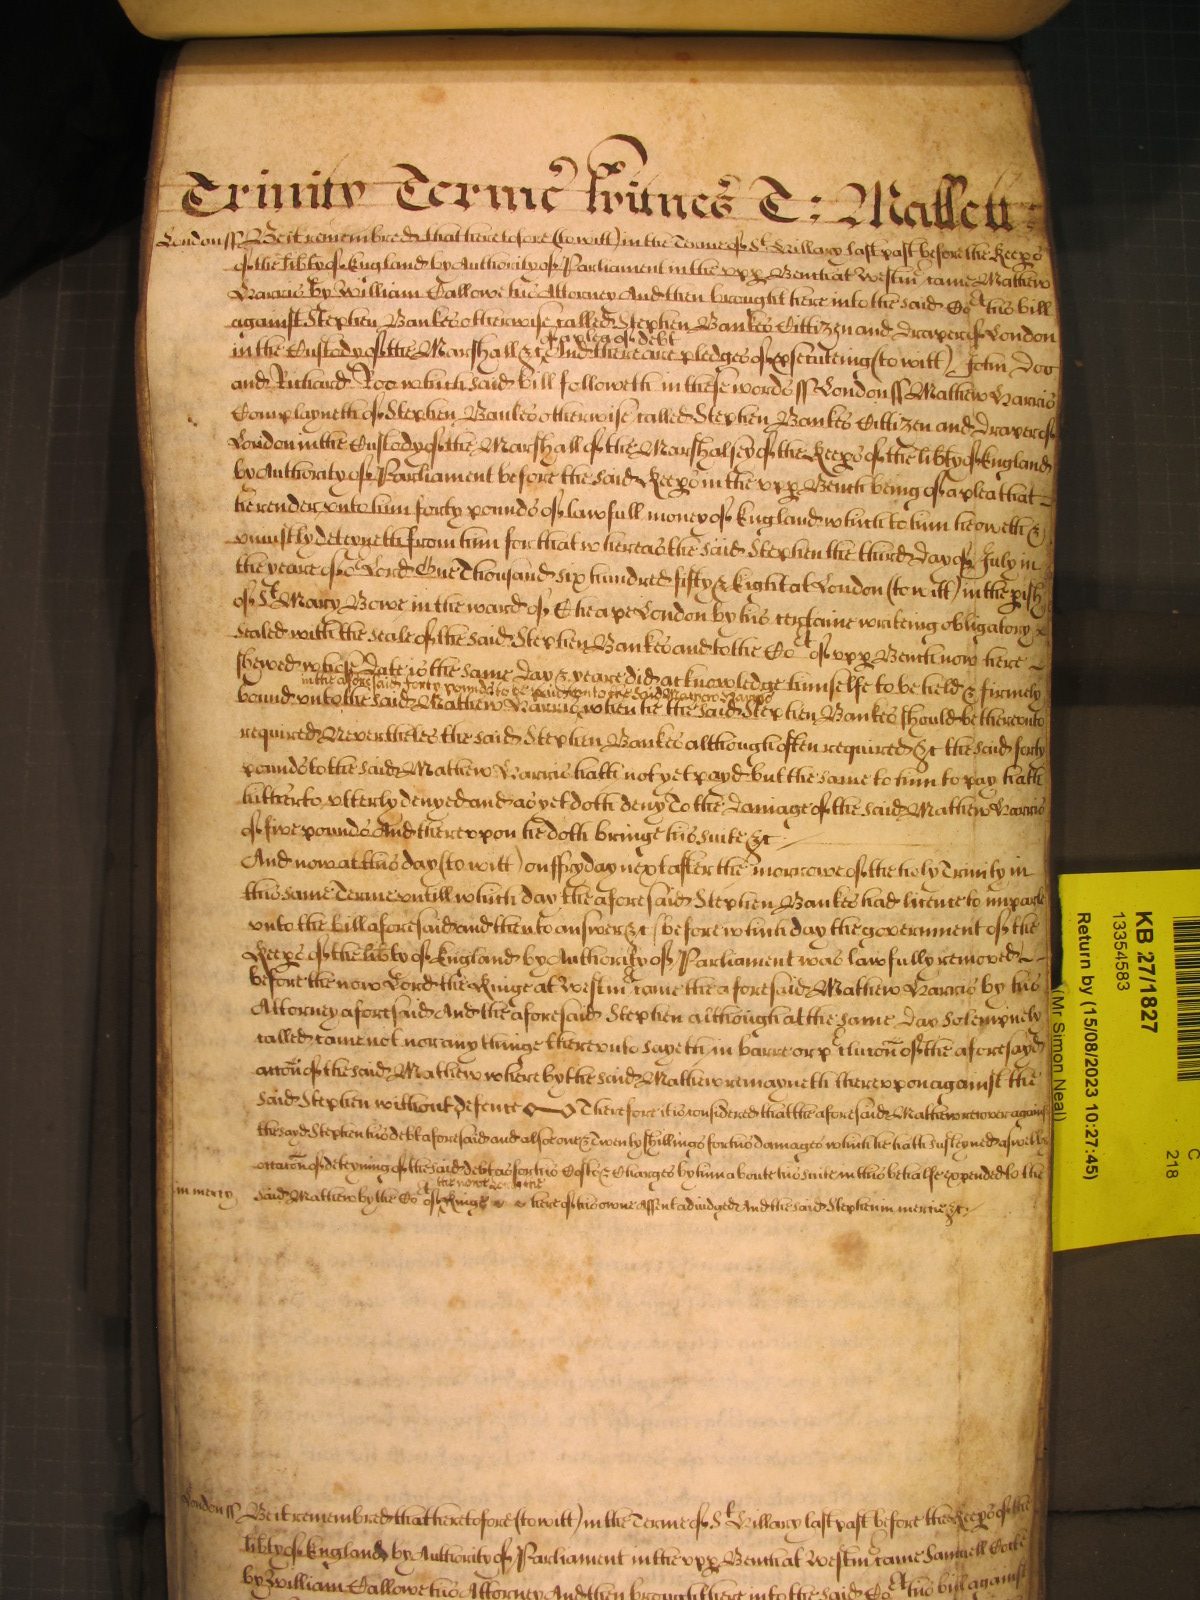 Trinity Terme Witnes T: Mallett
London ss Be it remembred that heretofore (to witt) in the Terme of St Hillary last past before the Keeps
of the lib̃ty of England by Authority of Parliament in the upp Bench at Westm̃ came Mathew
Harris by William Gallowe his Attorney And then brought here into the said Cot his bill
against Stephen Bankes otherwise called Stephen Bankes Cittizen and Draper of London
of a plea of debt
in the Custody of the Marshall &c And there are pledges of psecuteing (to witt) John Doo
and Richard Roo which said bill followeth in these words ss London ss Mathew Harris
Complayneth of Stephen Bankes otherwise called Stephen Bankes Cittizen and Draper of
London in the Custody of the Marshall of the Marshalsey of the Keeps of the lib̃ty of England
by Authority of Parliament before the said Keeps in the upp Bench being of a plea that
he render unto him forty pounds of lawfull money of England which to him he oweth &
uniustly deteyneth from him for that whereas the said Stephen the third day of July in
the yeare of or Lord One Thousand six hundred fifty & Eight at London (to witt) in the pish
of St Mary Bowe in the ward of Cheape London by his certaine writeing obligatory
sealed with the seale of the said Stephen Bankes and to the Cot of upp Bench now here
shewed whose date is the same day & yeare did acknowledge himselfe to be held & firmely
in the aforesaid forty pounds to be paid unto the said Mathew Harris
bound unto the said Mathew Harris when he the said Stephen Bankes should be thereunto
required Neverthelesse the said Stephen Bankes although often required &c the said forty
pounds to the said Mathew Harris hath not yet payd but the same to him to pay hath
hitherto utterly denyed and as yet doth deny To the damage of the said Mathew Harris
of five pounds And thereupon he doth bringe his suite &c
And now at this day (to witt) on ffryday next after the morrowe of the holy Trinity in
this same Terme untill which day the aforesaid Stephen Bankes had licence to imparle
unto the bill aforesaid and then to answer &c (before which day the government of the
Keeps of the lib̃ty of England by Authority of Parliament was lawfully removed
before the now Lord the Kinge at Westm̃ came the aforesaid Mathew Harris by his
Attorney aforesaid And the aforesaid Stephen although at the same day solempnely
called came not nor any thinge thereunto sayeth in barre or pclusion of the aforesayd
accon̄ of the said Mathew whereby the said Mathew remayneth thereupon against the
said Stephen without defence Therefore it is considered that the aforesaid Mathew recover against
the sayd Stephen his debt aforesaid and alsoe one & Twenty shillings for his damages which he hath susteyned aswell by
occacon̄ of deteyning of the said debt as for his Costs & Charges by him about his suite in this behalfe expended to the
the nowe Lord the
in mercy said Mathew by the Cot of Kinge here of his owne Assent adiudged And the said Stephen in mercie &c
London ss Be it remembred that heretofore (to witt) in the Terme of St Hillary last past before the Keeps of the
lib̃ty of England by Authority of Parliament in the upp Bench at Westm̃ came Samuell
by William Gallowe his Attorney And then brought here into the said Cot his bill against
C
218
KB 27/1827
13354583
Return by (15/08/2023 10:27:45)
(Mr Simon Neal)